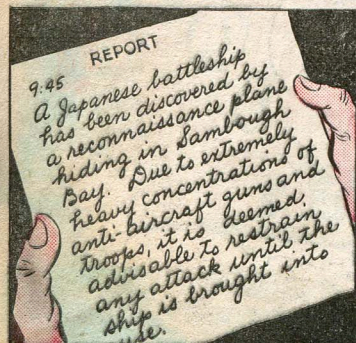 REPORT
9:45
A Japanese battleship
has been discovered by
a reconnaissance plane
hiding in Sambough
Bay. Due to extremely
heavy concentrations of
anti-aircraft guns and
troops, it is deemed
advisable to restrain
any attack until the
ship is brought into
use.